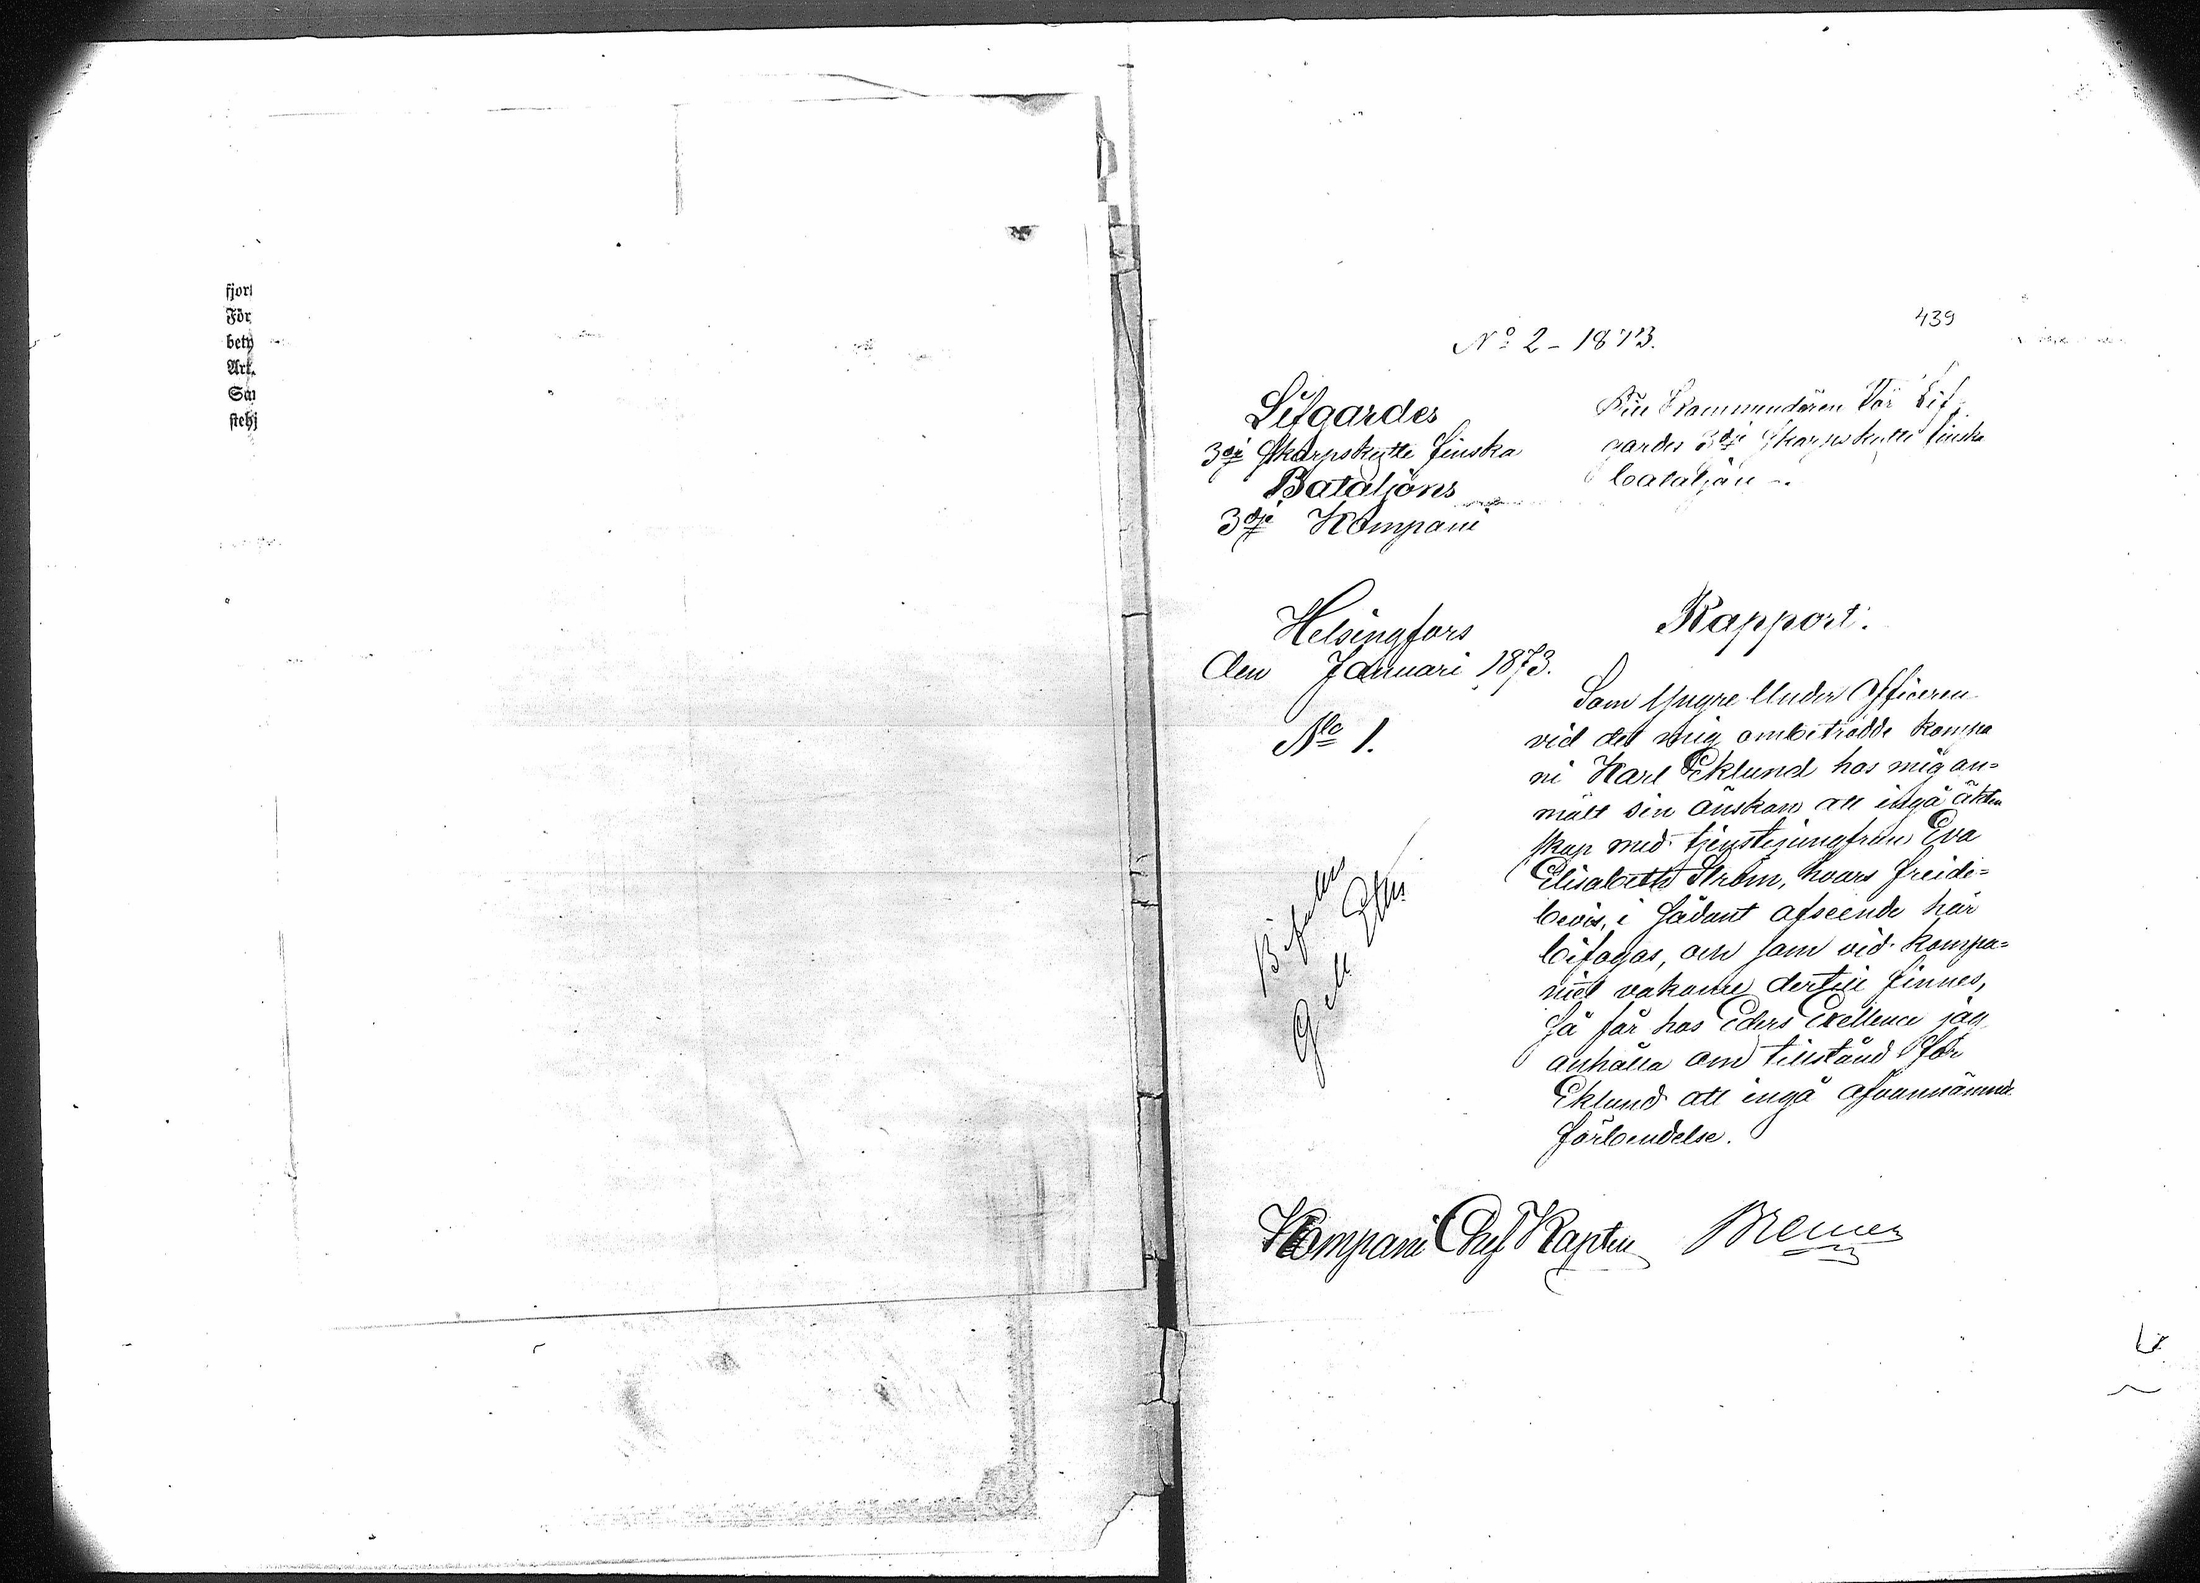 fjor
För
bety
Art.
Sar
stehj
439
No 2 - 1873.
Lifgardes
3dje Skarpskytte finska
Bataljons
3dje Kompani
Till Kommendören för Lif-
gardes 3dje Skarpskytte finska
bataljon.
Helsingfors
den Januari 1873.
No 1.
Rapport.
Som Yngre Under Officeren
vid det mig ombetrodde kompa
ni Karl Eklund hos mig an=
mält sin önskan att ingå äkten
skap med tjenstejungfrun Eva
Elisabeth Ström, hvars freide=
bevis, i sådant afseende här
bifogas, och som vid kompa=
niet vakance dertill finnes,
Så får hos Eders Exellence jag
anhålla om tillstånd för
Eklund att ingå ofvannämnde
förbendelse.
Bifalles
Kompani Chef Kapten